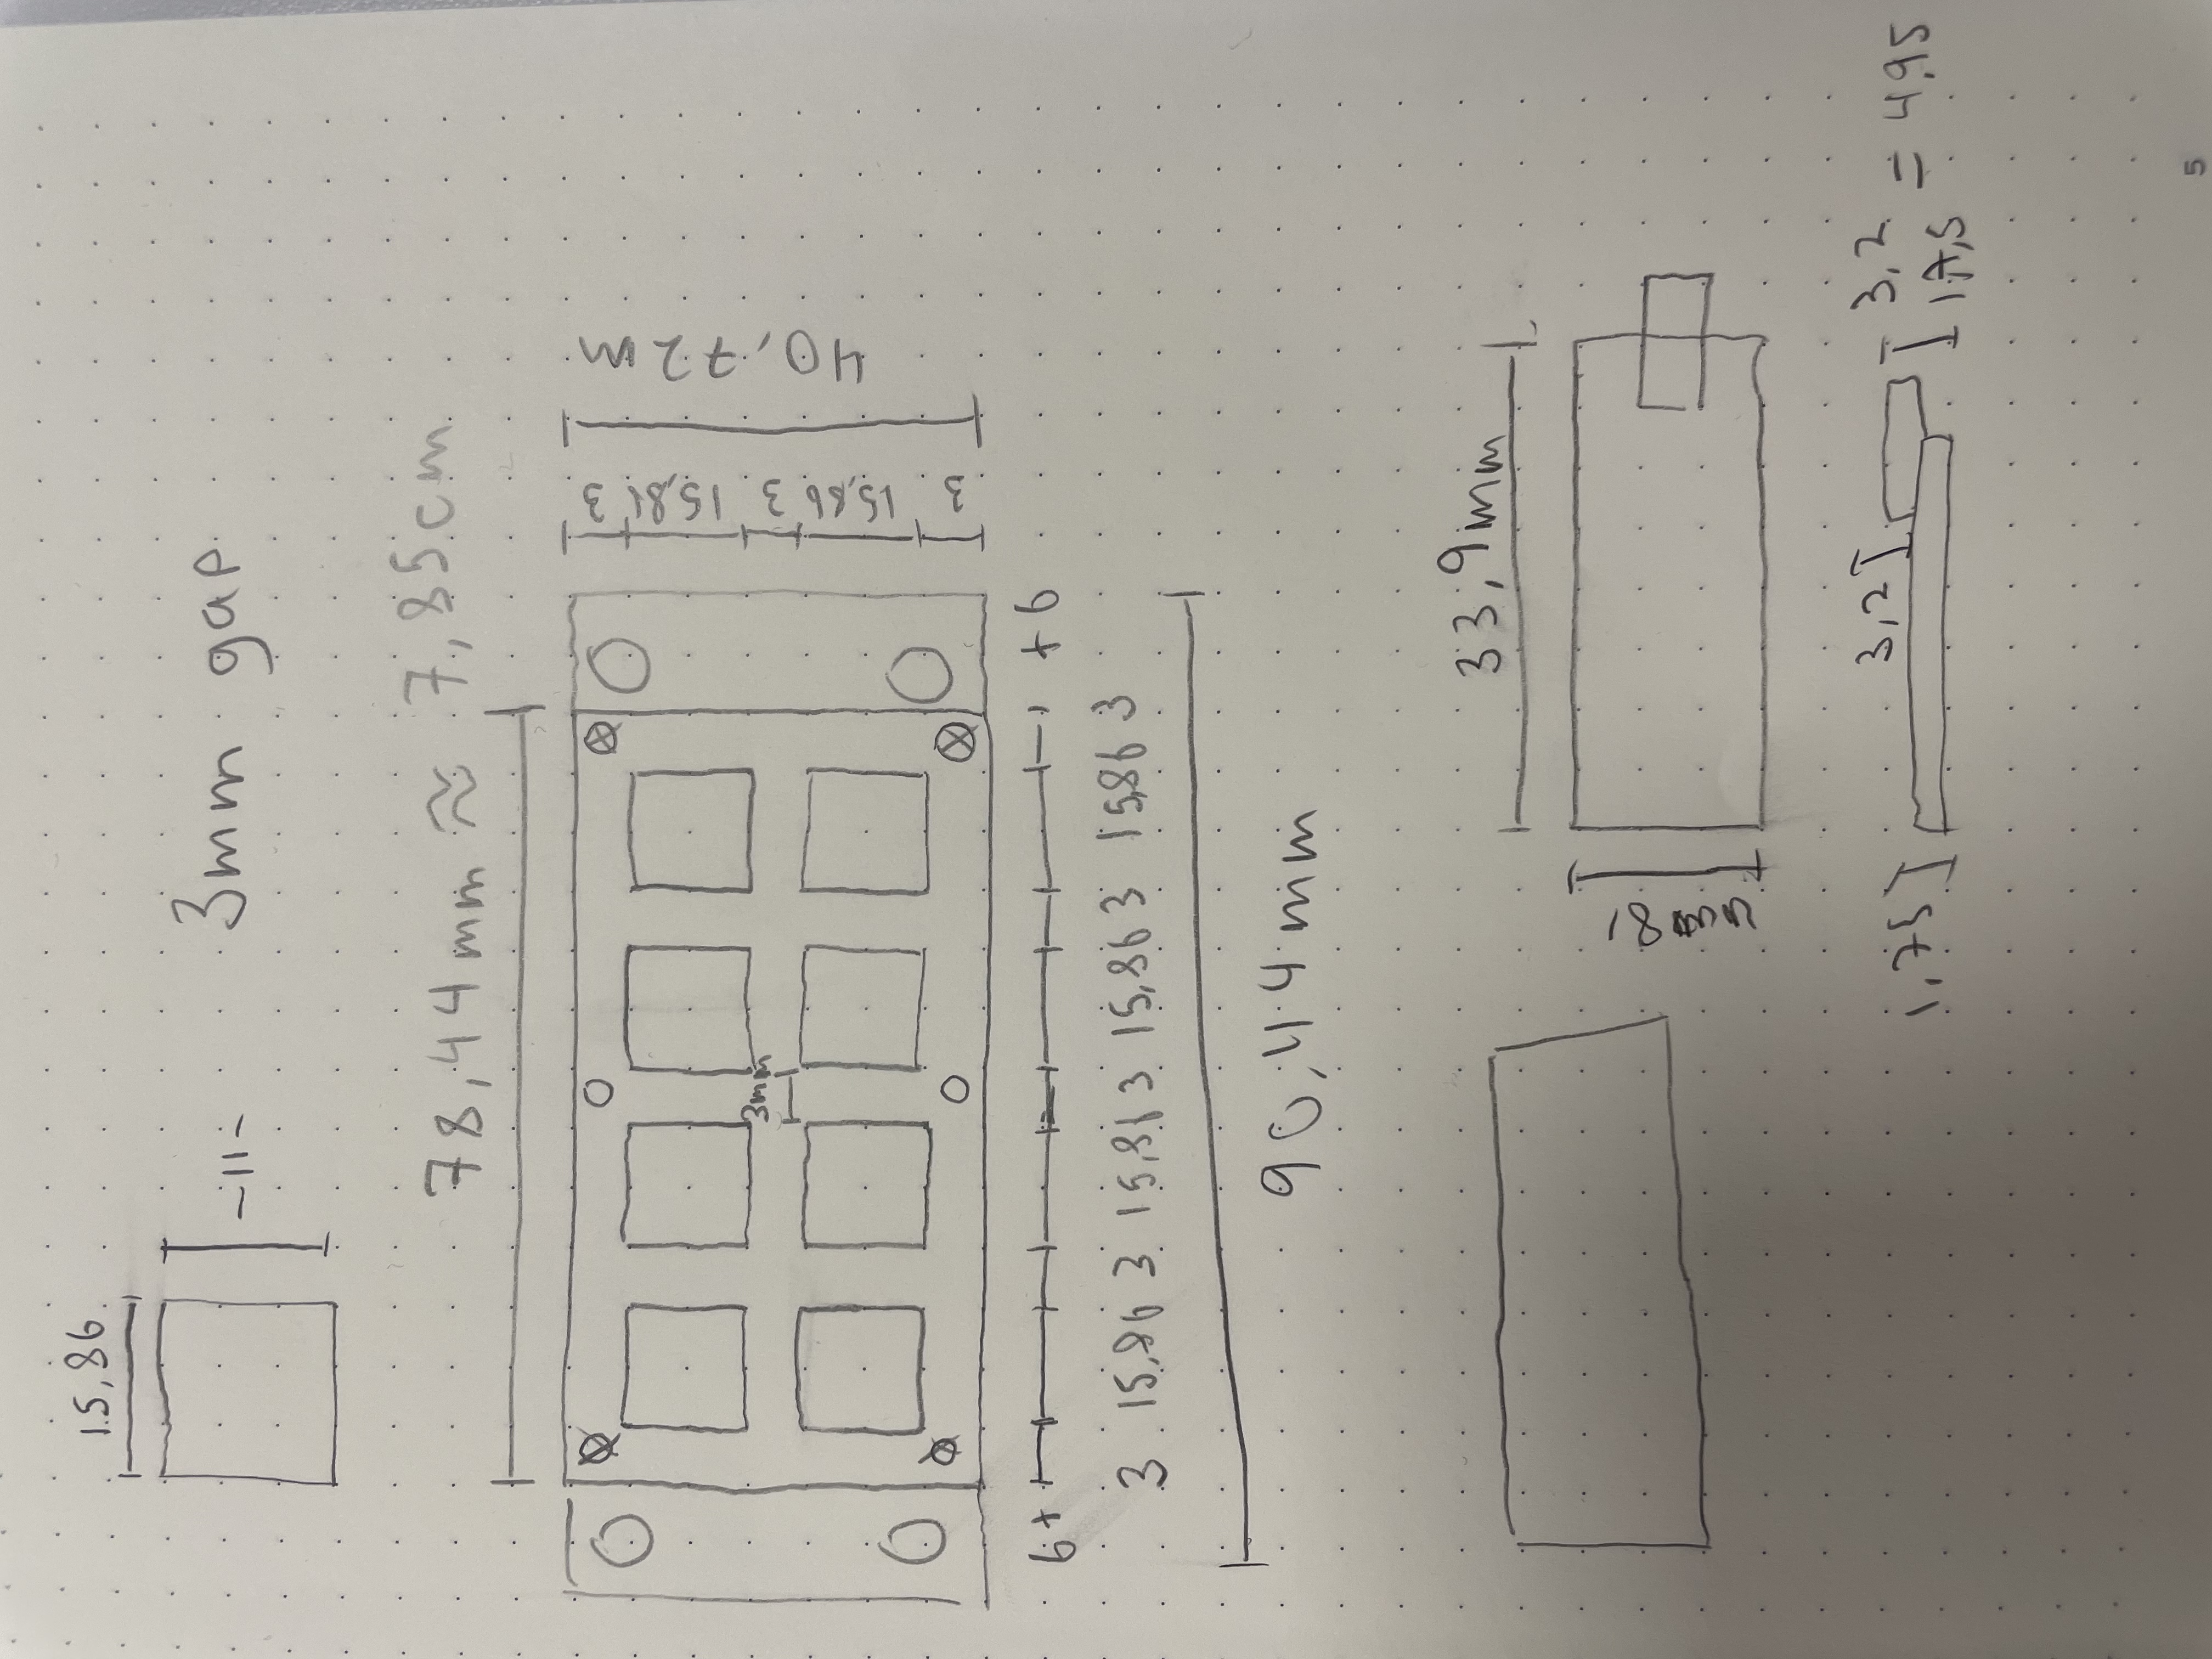 15,86
-11-
3mm gap
78,44mm ≈ 7,85cm
3mm
3
15,86
3
15,86
3
40,72m
6+
+6
3 15,86 3 15,86 3 15,86 3 15,86 3
90,44mm
33,9mm
18
1,75
3,2
3,2
= 4,95
5